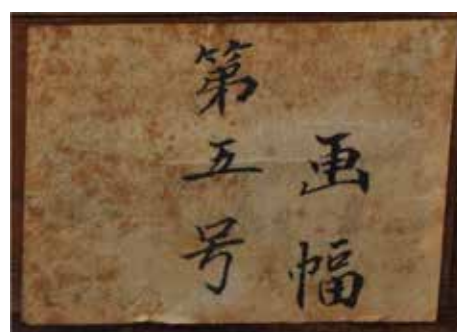 画幅
第五号